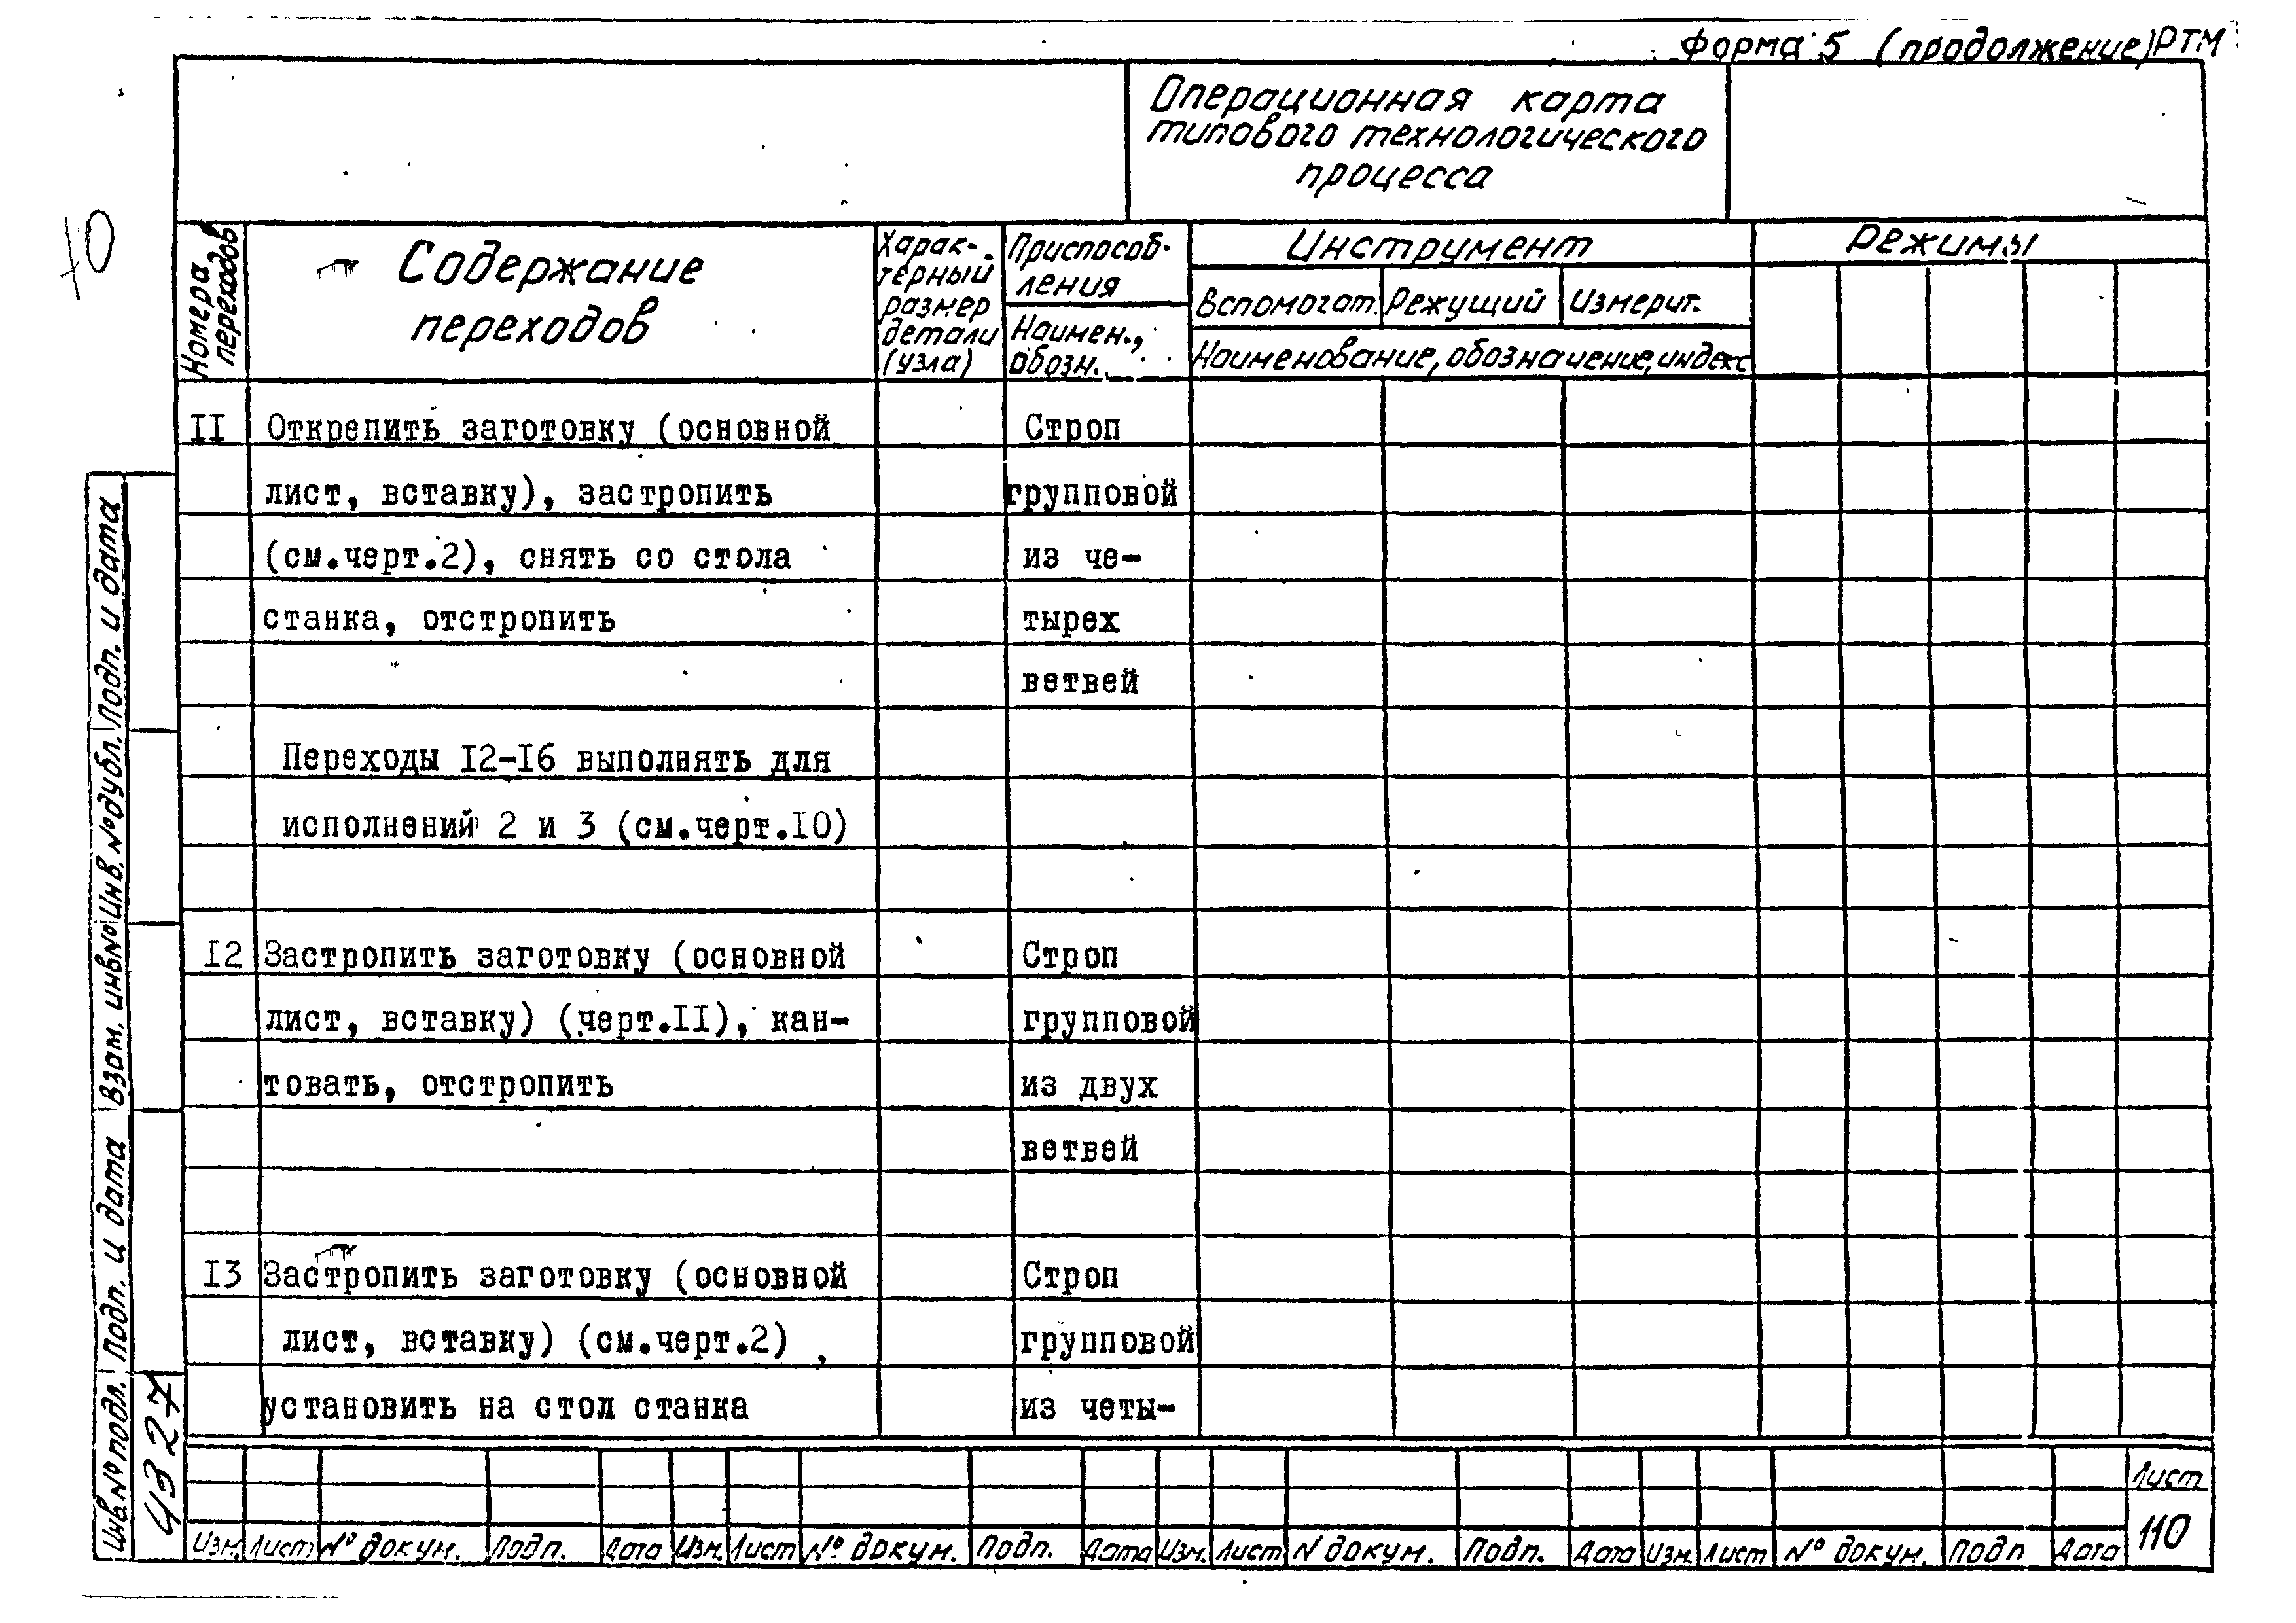 форма 5 (продолжение) РТМ
Операционная карта
типового технологического
процесса
Номера
переходов
Содержание
переходов
Харак-
терный
размер
детали
(узла)
Приспособ-
ления
Наимен.,
обозн.
Инструмент
Вспомогат. Режущий Измерит.
Наименование, обозначение, индекс
Режимы
II Открепить заготовку (основной Строп
лист, вставку), застропить групповой
(см.черт.2), снять со стола из че-
станка, отстропить тырех
ветвей
Переходы I2-I6 выполнять для
исполнений 2 и 3 (см.черт.IO)
I2 Застропить заготовку (основной Строп
лист, вставку) (черт.II), кан- групповой
товать, отстропить из двух
ветвей
I3 Застропить заготовку (основной Строп
лист, вставку) (см.черт.2) , групповой
установить на стол станка из четы-
Подп. и дата
Инв.№дубл.
Взам. инв№
Подп. и дата
Инв.№подл.
4327
Лист
110
Изм. Лист № докум. Подп. Дата Изм. Лист № докум. Подп. Дата Изм. Лист N докум. Подп. Дата Изм. Лист № докум. Подп Дата